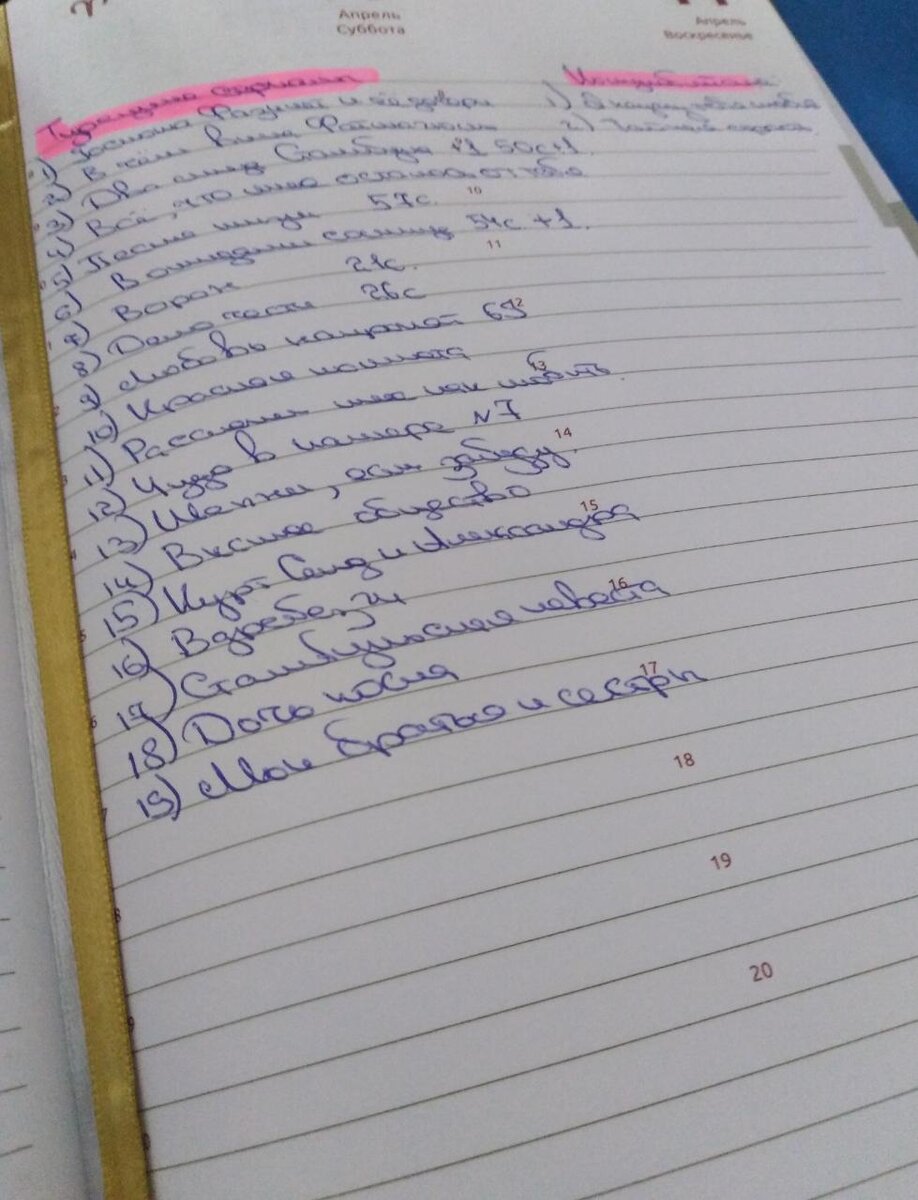 Апрель
Суббота
Апрель
Воскресенье
Турецкие сериалы
1) Госпожа Фазилет и её дочери
2) В чём вина Фатмагюль
3) Два лица Стамбула 1 50с+1
4) Всё, что мне осталось от тебя
5) Песня жизни 57с. 10
6) В ожидании солнца 54с +1.
7) Ворон 21с. 11
8) Дело чести 26с
9) Любовь напрокат 69 12
10) Красная комната
11) Расскажи мне как любить 13
12) Чудо в камере №7
13) Шепни, если забуду. 14
14) Высшее общество
15) Курт Сеид и Александра 15
16) Вдребезги
17) Стамбульская невеста 16
18) Дочь посла
19) Мои братья и сестры 17
18
19
20
1)
2)